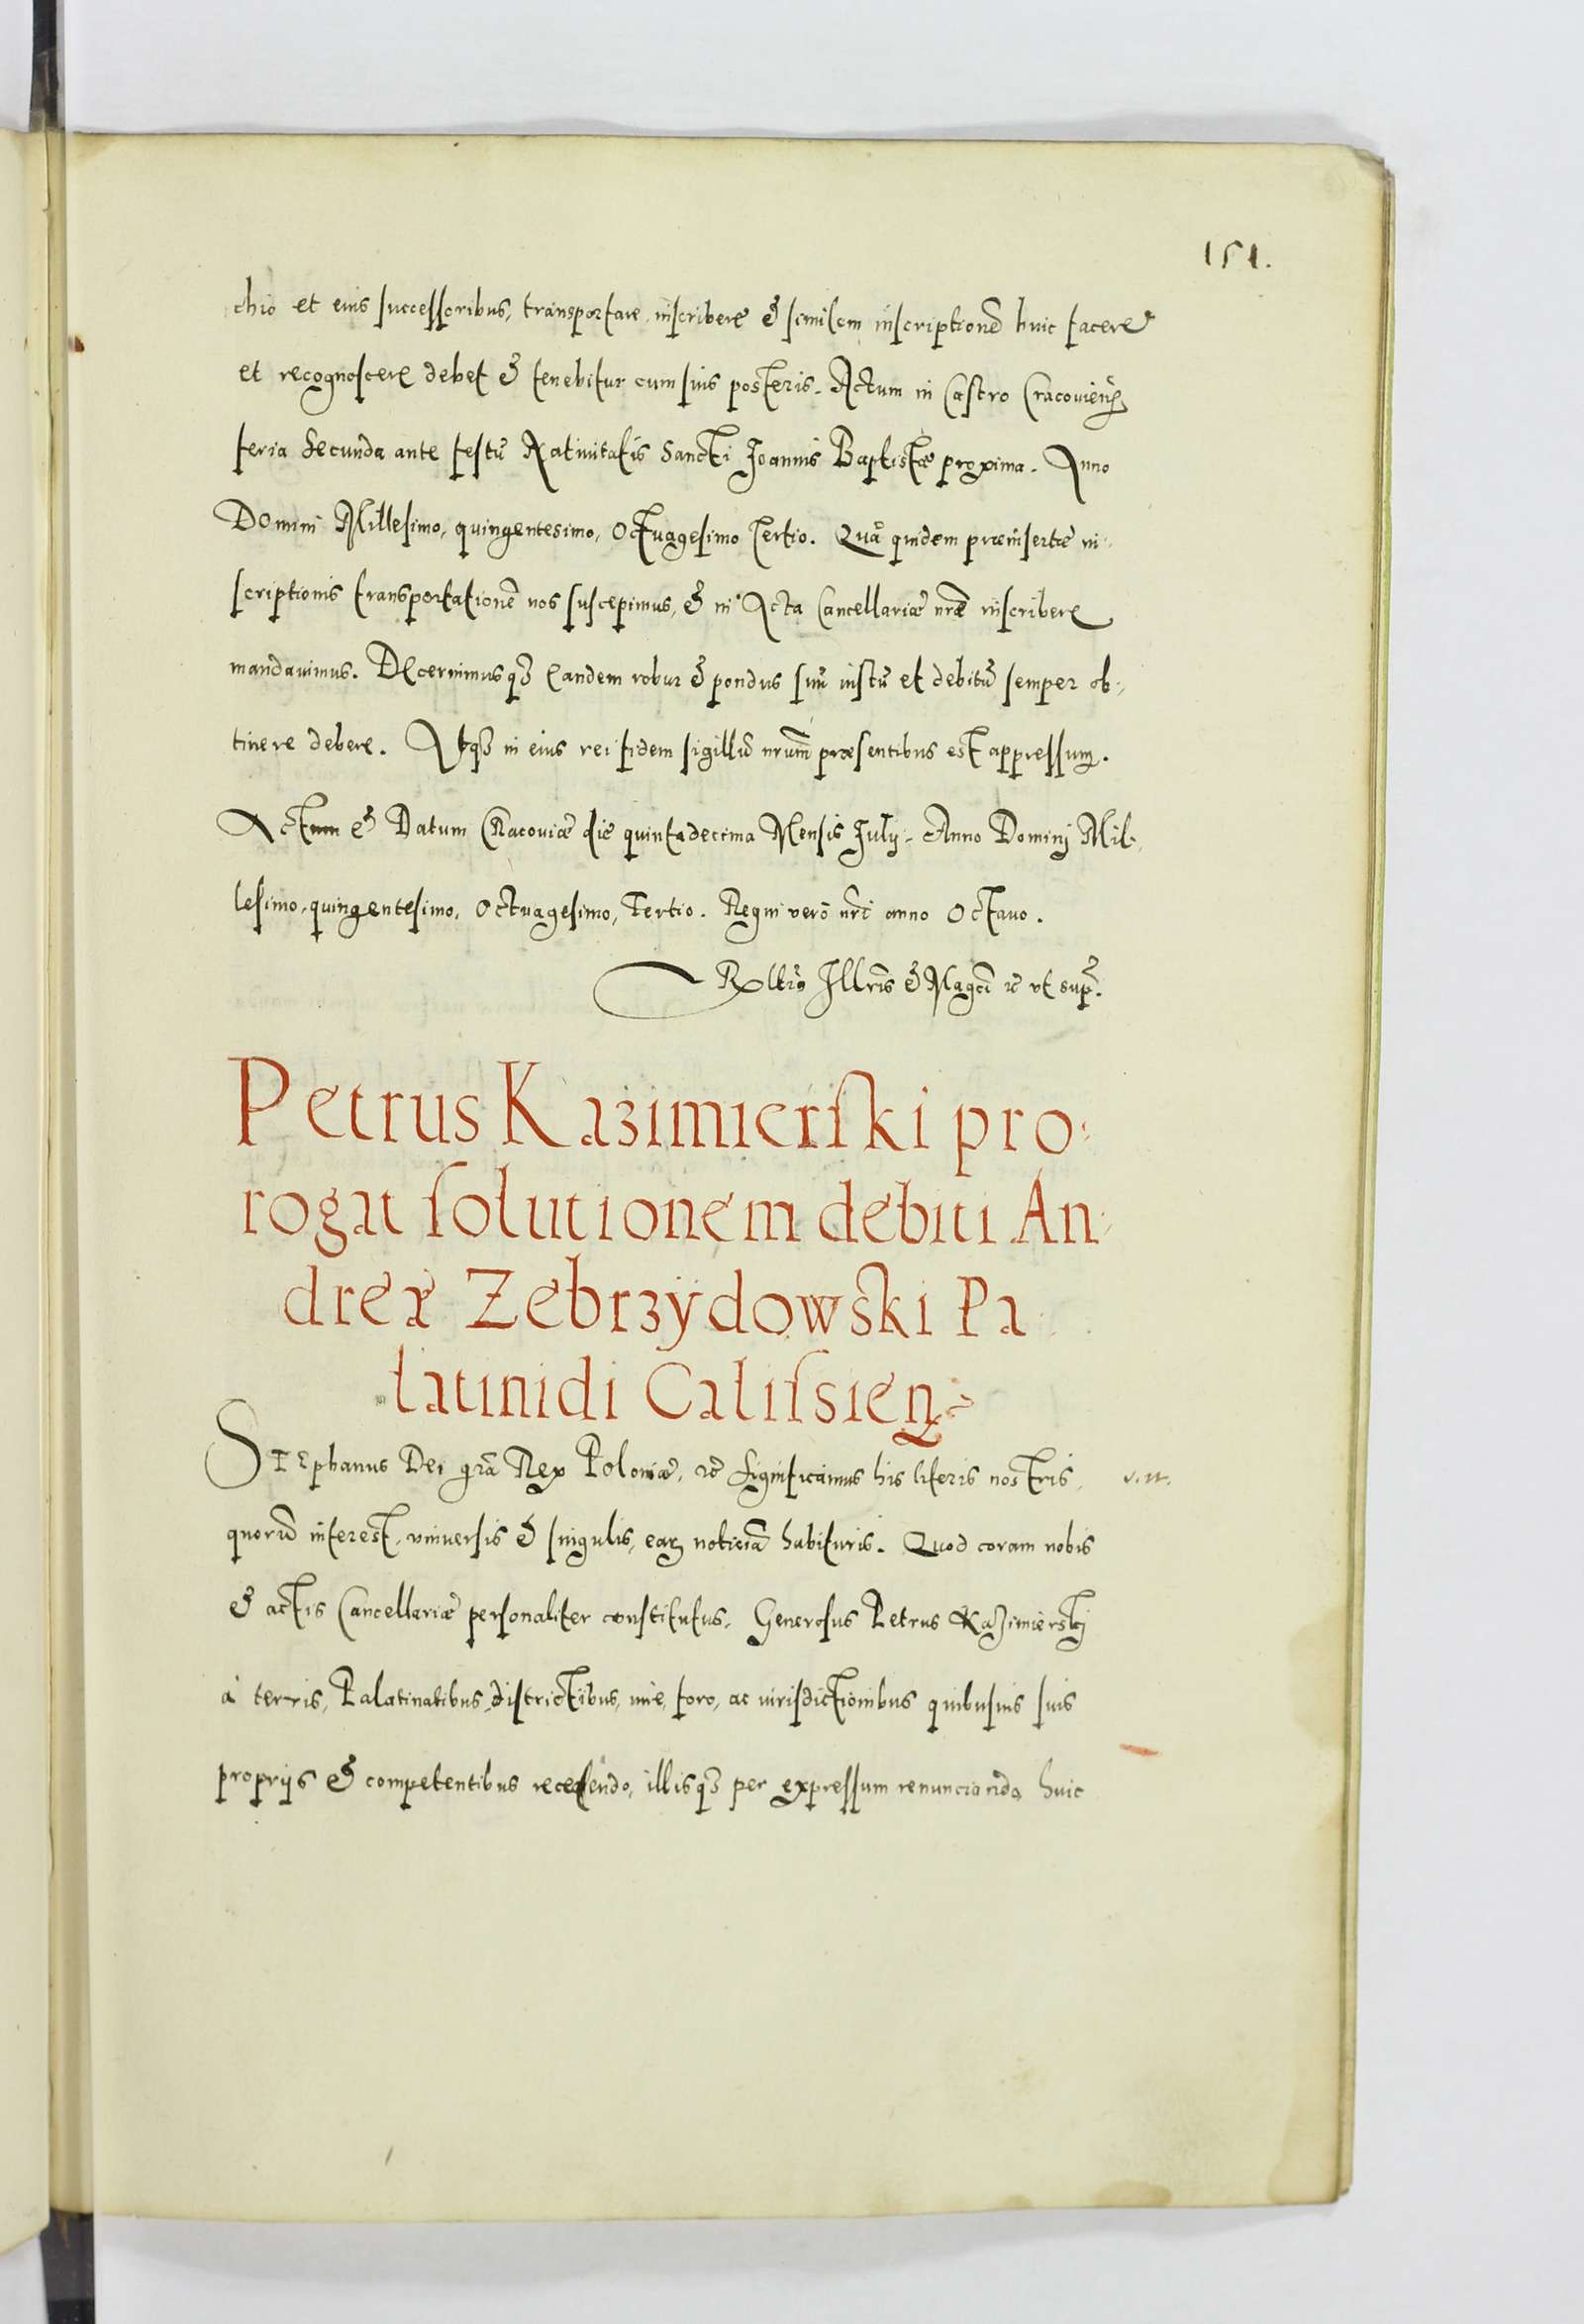 151.
chio et eius successoribus, transportare, inscribere & similem inscriptionē huic facere
et recognoscere debet & tenebitur cum suis posteris. Actum in Castro Cracovien̄
feria Secunda ante festū Natiuitatis Sancti Ioannis Baptistæ proxima. Anno
Domini Millesimo, quingentesimo, Octuagesimo Tertio. Quā quidem præinsertæ in-
scriptionis transportationē nos suscepimus, & in Acta Cancellariæ nr̄æ inscribere
mandauimus. Decernimusqз eandem robur & pondus suū iustū et debitū semper ob-
tinere debere. Atqз in eius rei fidem sigillū nrūm præsentibus est appressum.
Actum & Datum Cracoviæ die quintadecima Mensis Iulij. Anno Dominj Mil-
lesimo, quingentesimo, Octuagesimo, Tertio. Regni verò nr̄i anno Octauo.
Rellātio Illris & Magci ꝛc vt sup̄.
Petrus Kazimierski pro-
rogat solutionem debiti An-
dreæ Zebrzÿdowski Pa
latinidi Calissien̄
Stephanus Dei grā Rex Poloniæ, ꝛc Significamus his literis nostris,
quorū interest, vniuersis & singulis, earꝫ noticiā habituris. Quod coram nobis
& actis Cancellariæ personaliter constitutus, Generosus Petrus Kazimierskj
à terris, Palatinatibus, districtibus, iure, foro, ac iurisdictionibus quibusuis suis
proprijs & competentibus recedendo, illisqз per expressum renunciando, huic